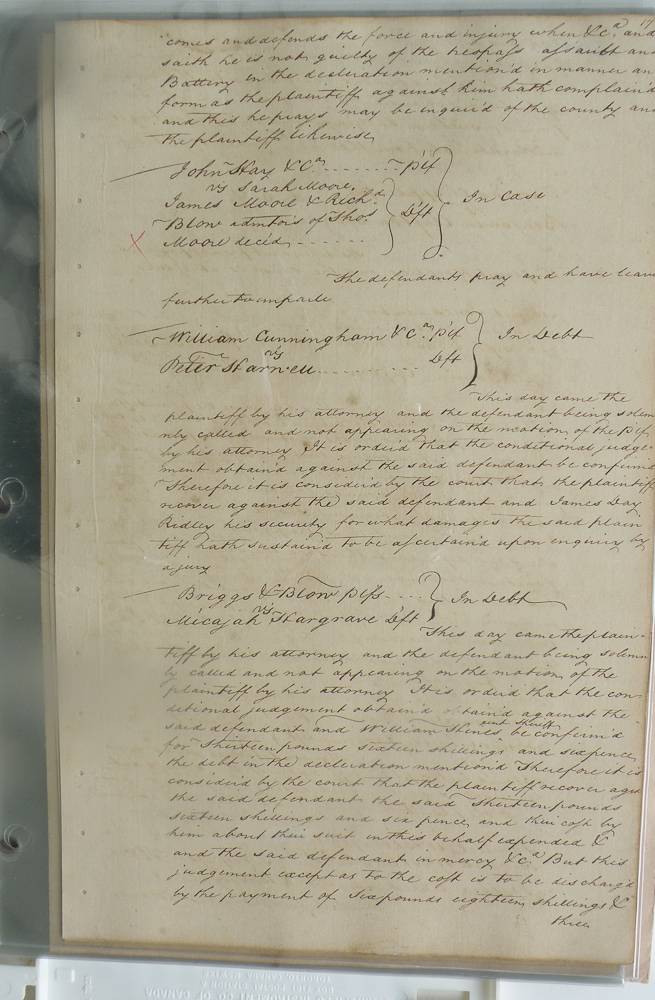 comes and defends the force and injury when &Ca. and
saith he is not guilty of the trespass assault an
Battery in the decleration mention'd in manner an
form as the plaintiff against him hath complain'd
and this he prays may be enquir'd of the county an
the plaintiff likewise
John Hay & Ca - - - - - - Plf
vs Sarah Moore,
James Moore & Richd
Blow admtors of Thos
Moore deced, - - - - - -
Dft
In Case
The defendants pray and have leave
further to imparle
William Cunningham & Ca. Plf
vs
Peter Harwell - - - - - - - Dft
In Debt
This day came the
plaintiff by his attorney and the defendant being solem
nly called and not appearing on the motion of the Plf
by his attorney It is order'd that the conditional judge-
ment obtain'd against the said defendant be confirm'd
Therefore it is consider'd by the court that the plaintiff
recover against the said defendant and James Day
Ridley his security for what damages the said plain
tiff hath sustain'd to be ascertain'd upon enquiry by
a jury
Briggs & Blow plfs - - - -
vs
Micajah Hargrave Dft
In Debt
This day came the plain-
tiff by his attorney and the defendant being solemn
ly called and not appearing on the motion of the
plaintiff by his attorney It is order'd that the con-
ditional judgement obtain'd against the
said defendant and William Hines Sheriff be confirm'd
for Thirteen pounds sixteen shillings and sixpence
the debt in the decleration mention'd Therefore it is
consider'd by the court that the plaintiff recover agst
the said defendant the said Thirteen pounds
sixteen shillings and six pence, and their cost by
him about their suit in this behalf expended &
and the said defendant in mercy &Ca. But this
judgement except as to the cost is to be discharg'd
by the payment of Six pounds eighteen shillings &
three